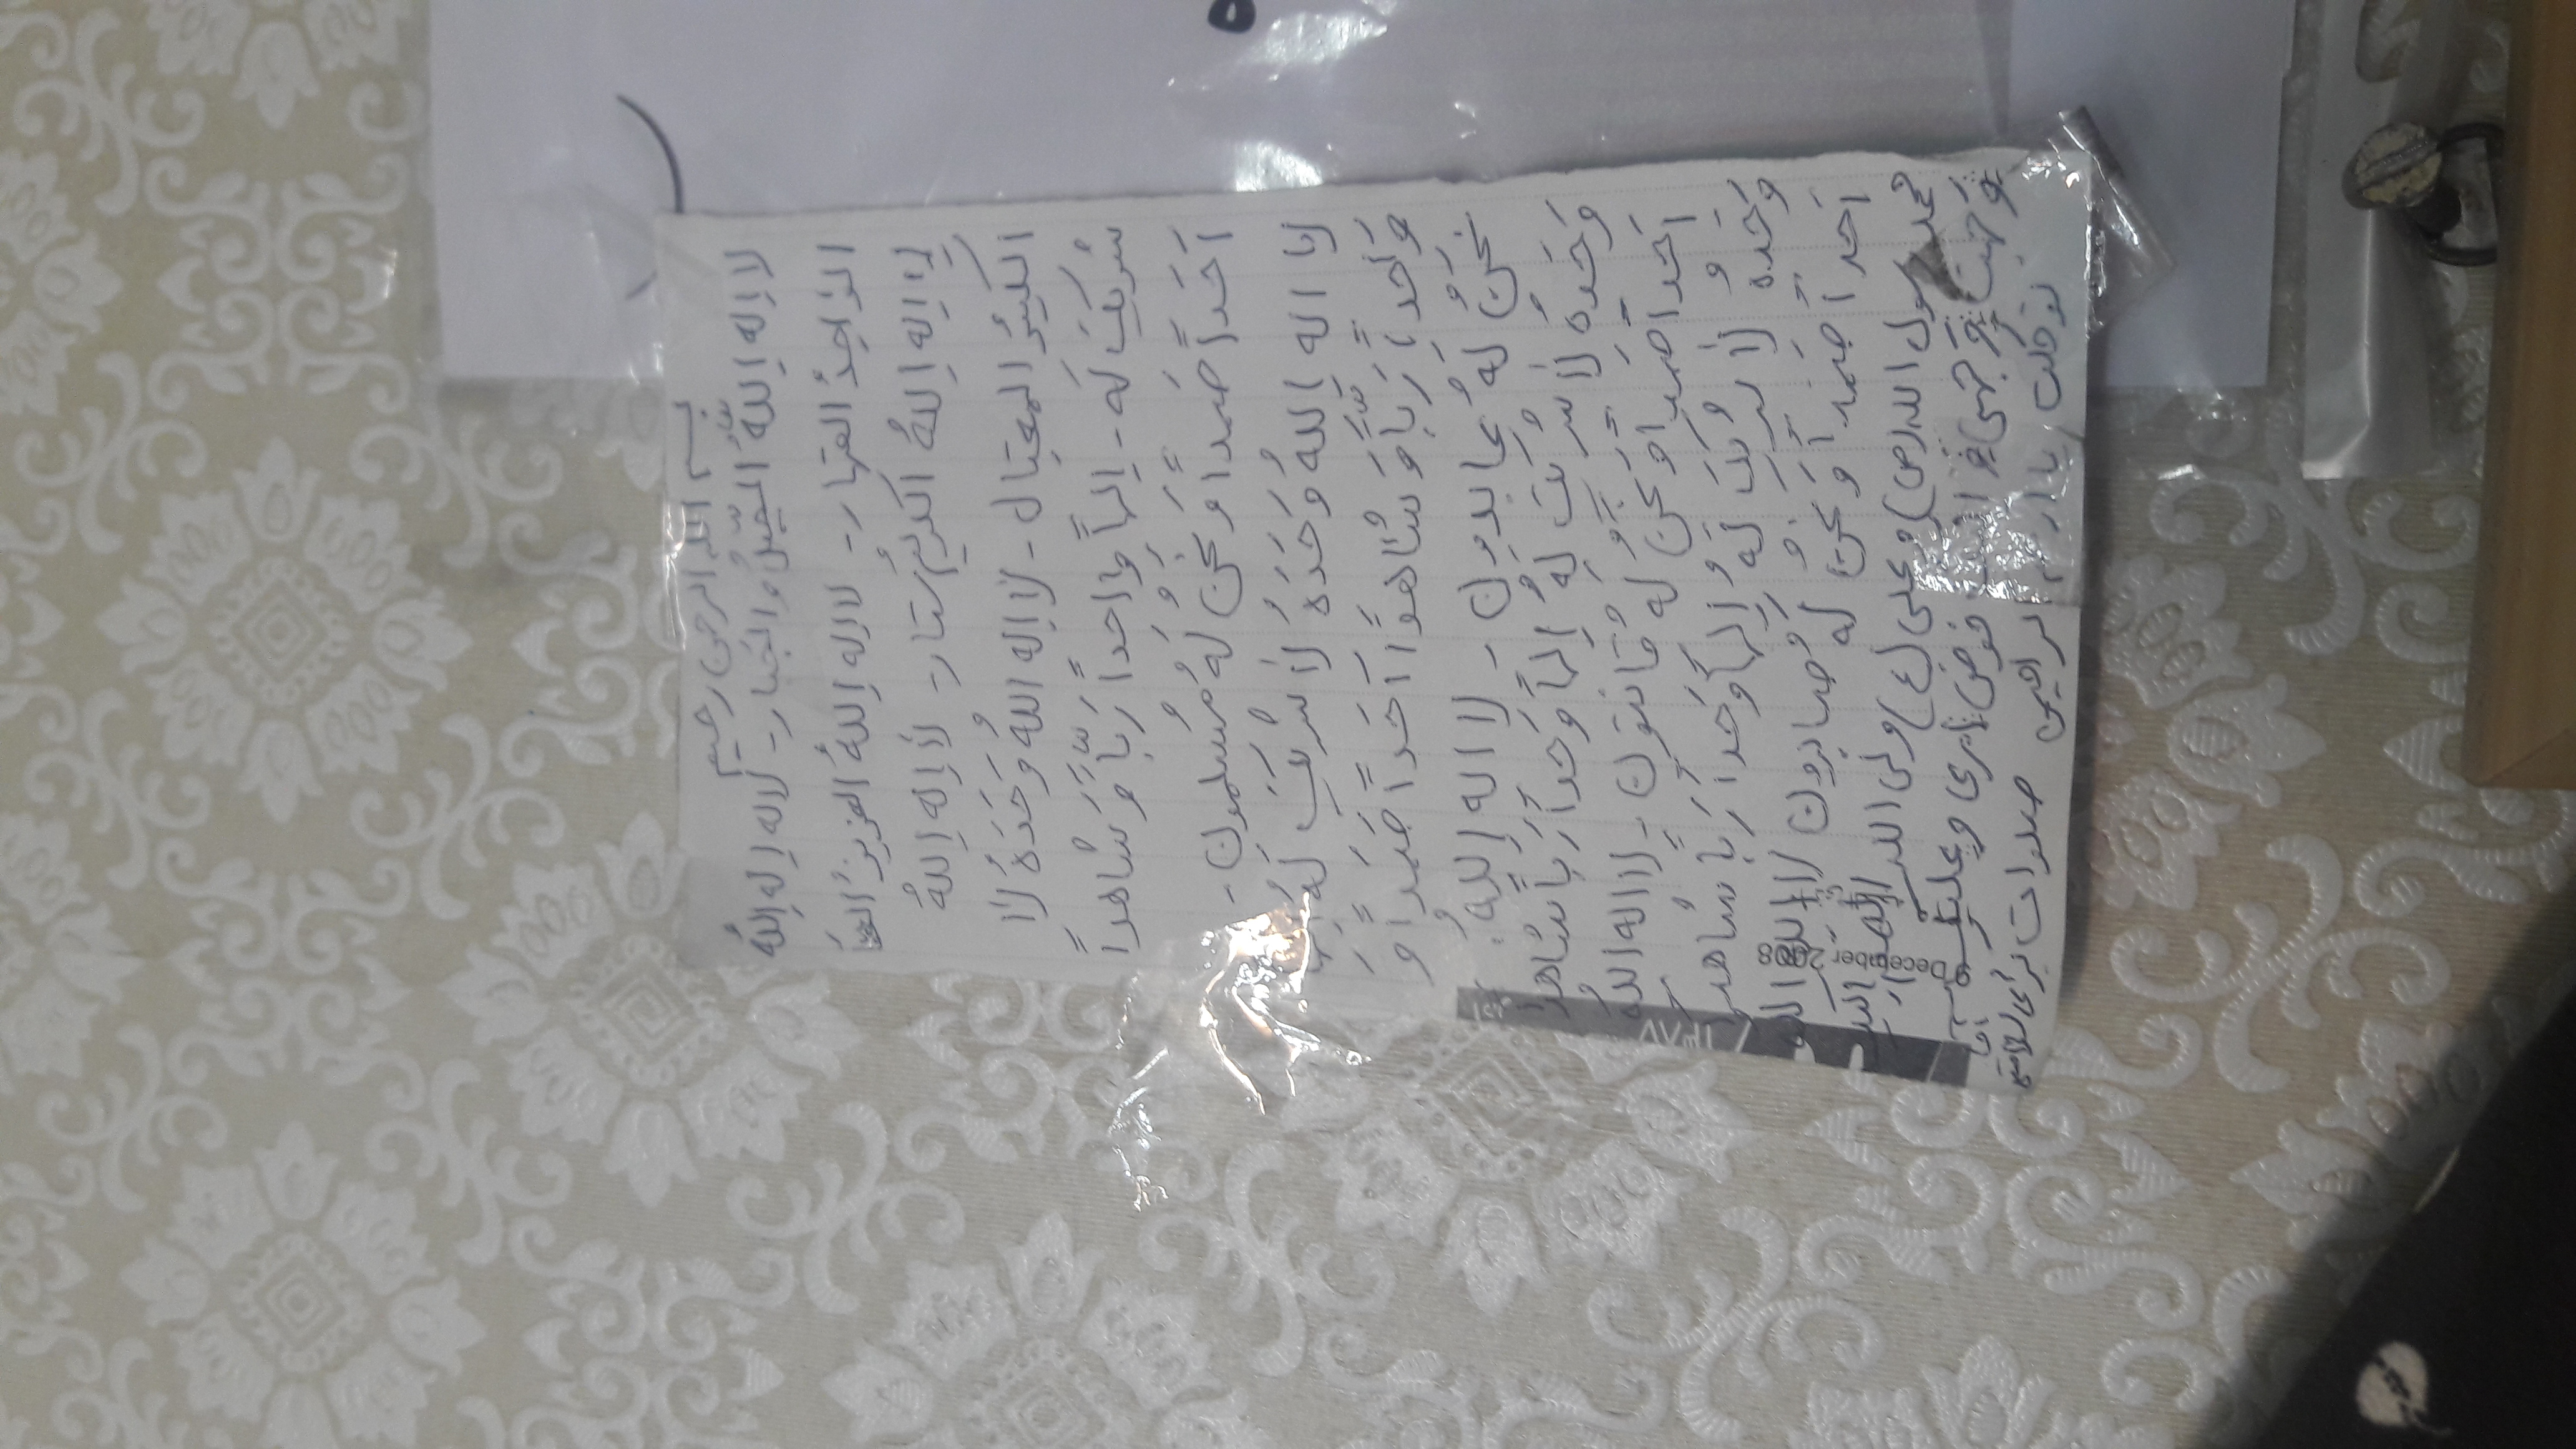 بسم الله الرحمن رحیم
لا اِله اِللّهُ الجَّیلُ والجَبار - لااله اِله اِللهُ
الوٰاحِدُ القهار - لااِله اِللهُ العزیزُ
لاٰ اِله اِللهُ الکریمُ ستار - لاٰ اِله اِللهُ
الکَبیرُ المعتِال - لاٰ اِله اللهُ وَحَدَهُ لاٰ
شْریکَ لَه - اِلهاً واحداً رَبّاً وَ شْاهداً
اَحَداً صَمداً وَ نَحنُ لَهُ مُسلمون -
لا اله اِللهُ وَحَدَهُ لاٰ شْریکَ لَهُ
وَاحداً رَبّاً وَ شْاهداً اَحَداً صَمَداً وَ
نَحَنُ لَهُ عابدون - لا اله اِللهُ
وَحَدهُ لاٰ شْریکَ لَهُ اِلهاً وَحداً رَباً شاهد
اَحَداً صَمَداً وَ نَحَنُ لَهُ قانتون - لا اله اللهُ
وَحَدهُ لاٰ شریکَ لَهُ اِلهاً وَحَداً رَباً شْاهد
اَحداً صَمَداً وَ نَحنُ لَهُ صابرون لا
محمد رسول الله (ص) و علی (ع) ولی الله اللهم الیک
وَجهت وَجهی و فوض امری و علیک
توکلت یا ارحم الراحمین صلوات برای سلامتی آقا
9 December 2008
۱۳۸۷